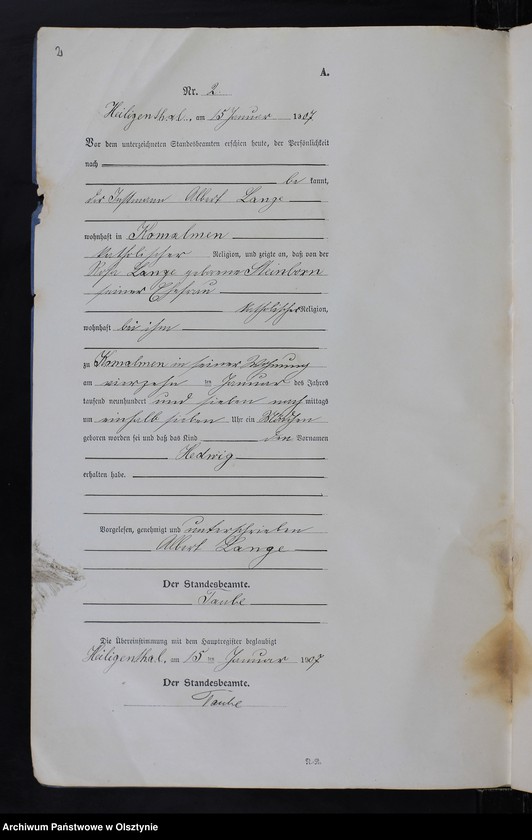 2
A.
Nr. 2
Heiligenthal, am 15 Januar 1907
Vor dem unterzeichneten Standesbeamten erschien heute, der Persönlichkeit
nach
be kannt,
der Instmann Albert Lange
wohnhaft in Komalmen
katholischer Religion, und zeigte an, daß von der
Rosa Lange geborene Steinborn
seiner Ehefrau
katholischer Religion,
wohnhaft bei ihm
zu Komalmen in seiner Wohnung
am vierzehn ten Januar des Jahres
tausend neunhundert und sieben nach mittags
um einhalb sieben Uhr ein Mädchen
geboren worden sei und daß das Kind den Vornamen
Hedwig
erhalten habe.
Vorgelesen, genehmigt und unterschrieben
Albert Lange
Der Standesbeamte.
Taube
Die Übereinstimmung mit dem Hauptregister beglaubigt
Heiligenthal, am 15 ten Januar 1907
Der Standesbeamte.
Taube
Archiwum Państwowe w Olsztynie